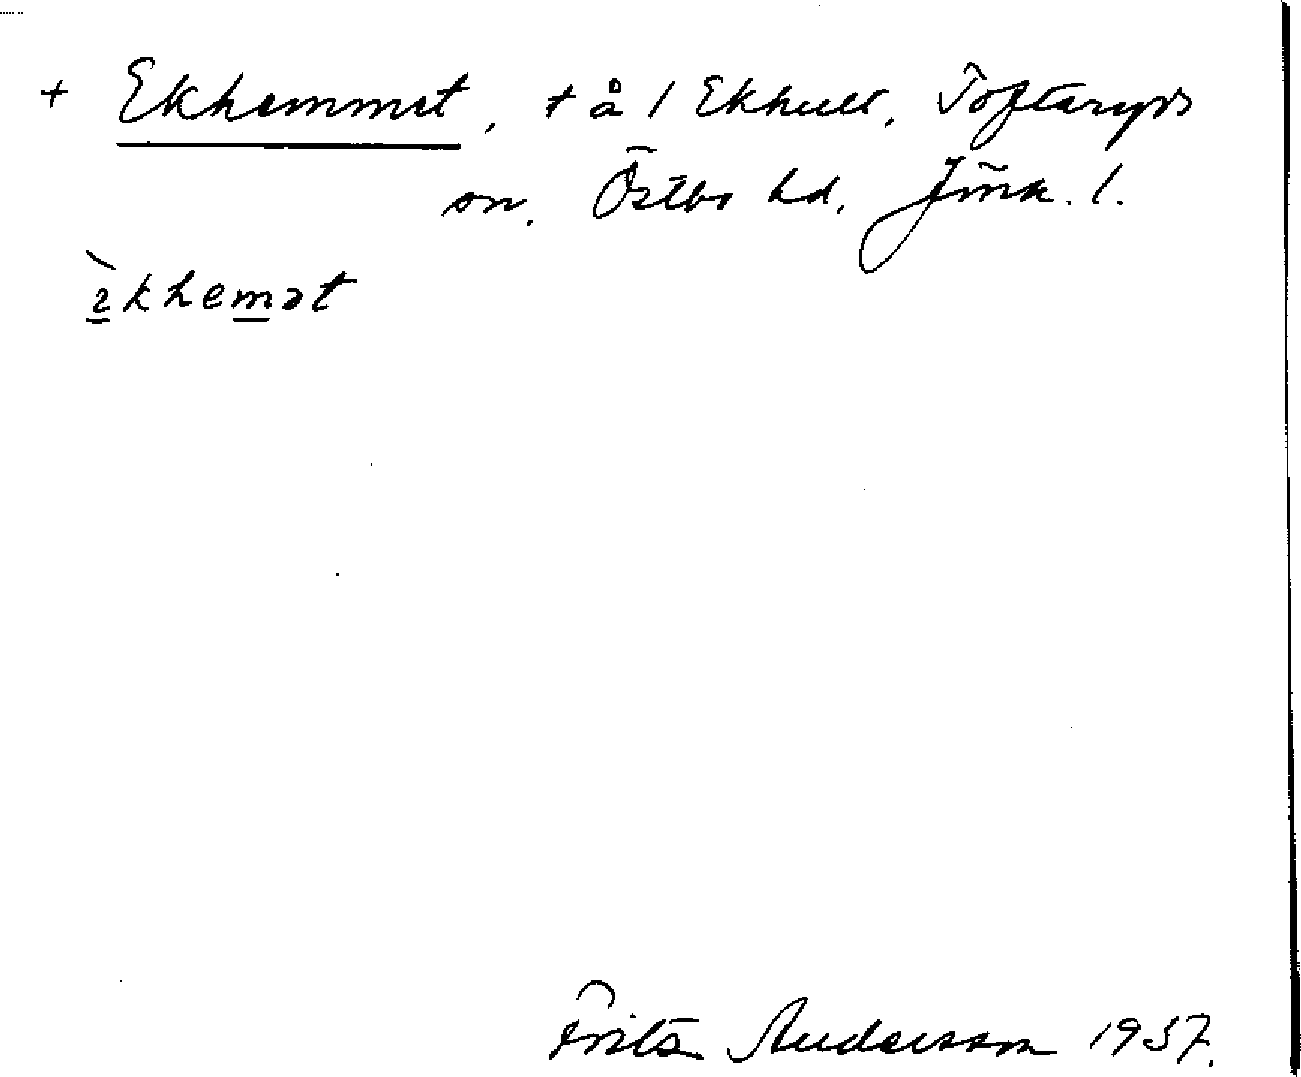 + Ekhemmet, + å 1 Ekhult, Tofteryds
sn. Östbo hd, Jönk. l.
èkhemət
Frits Andersson 1937.